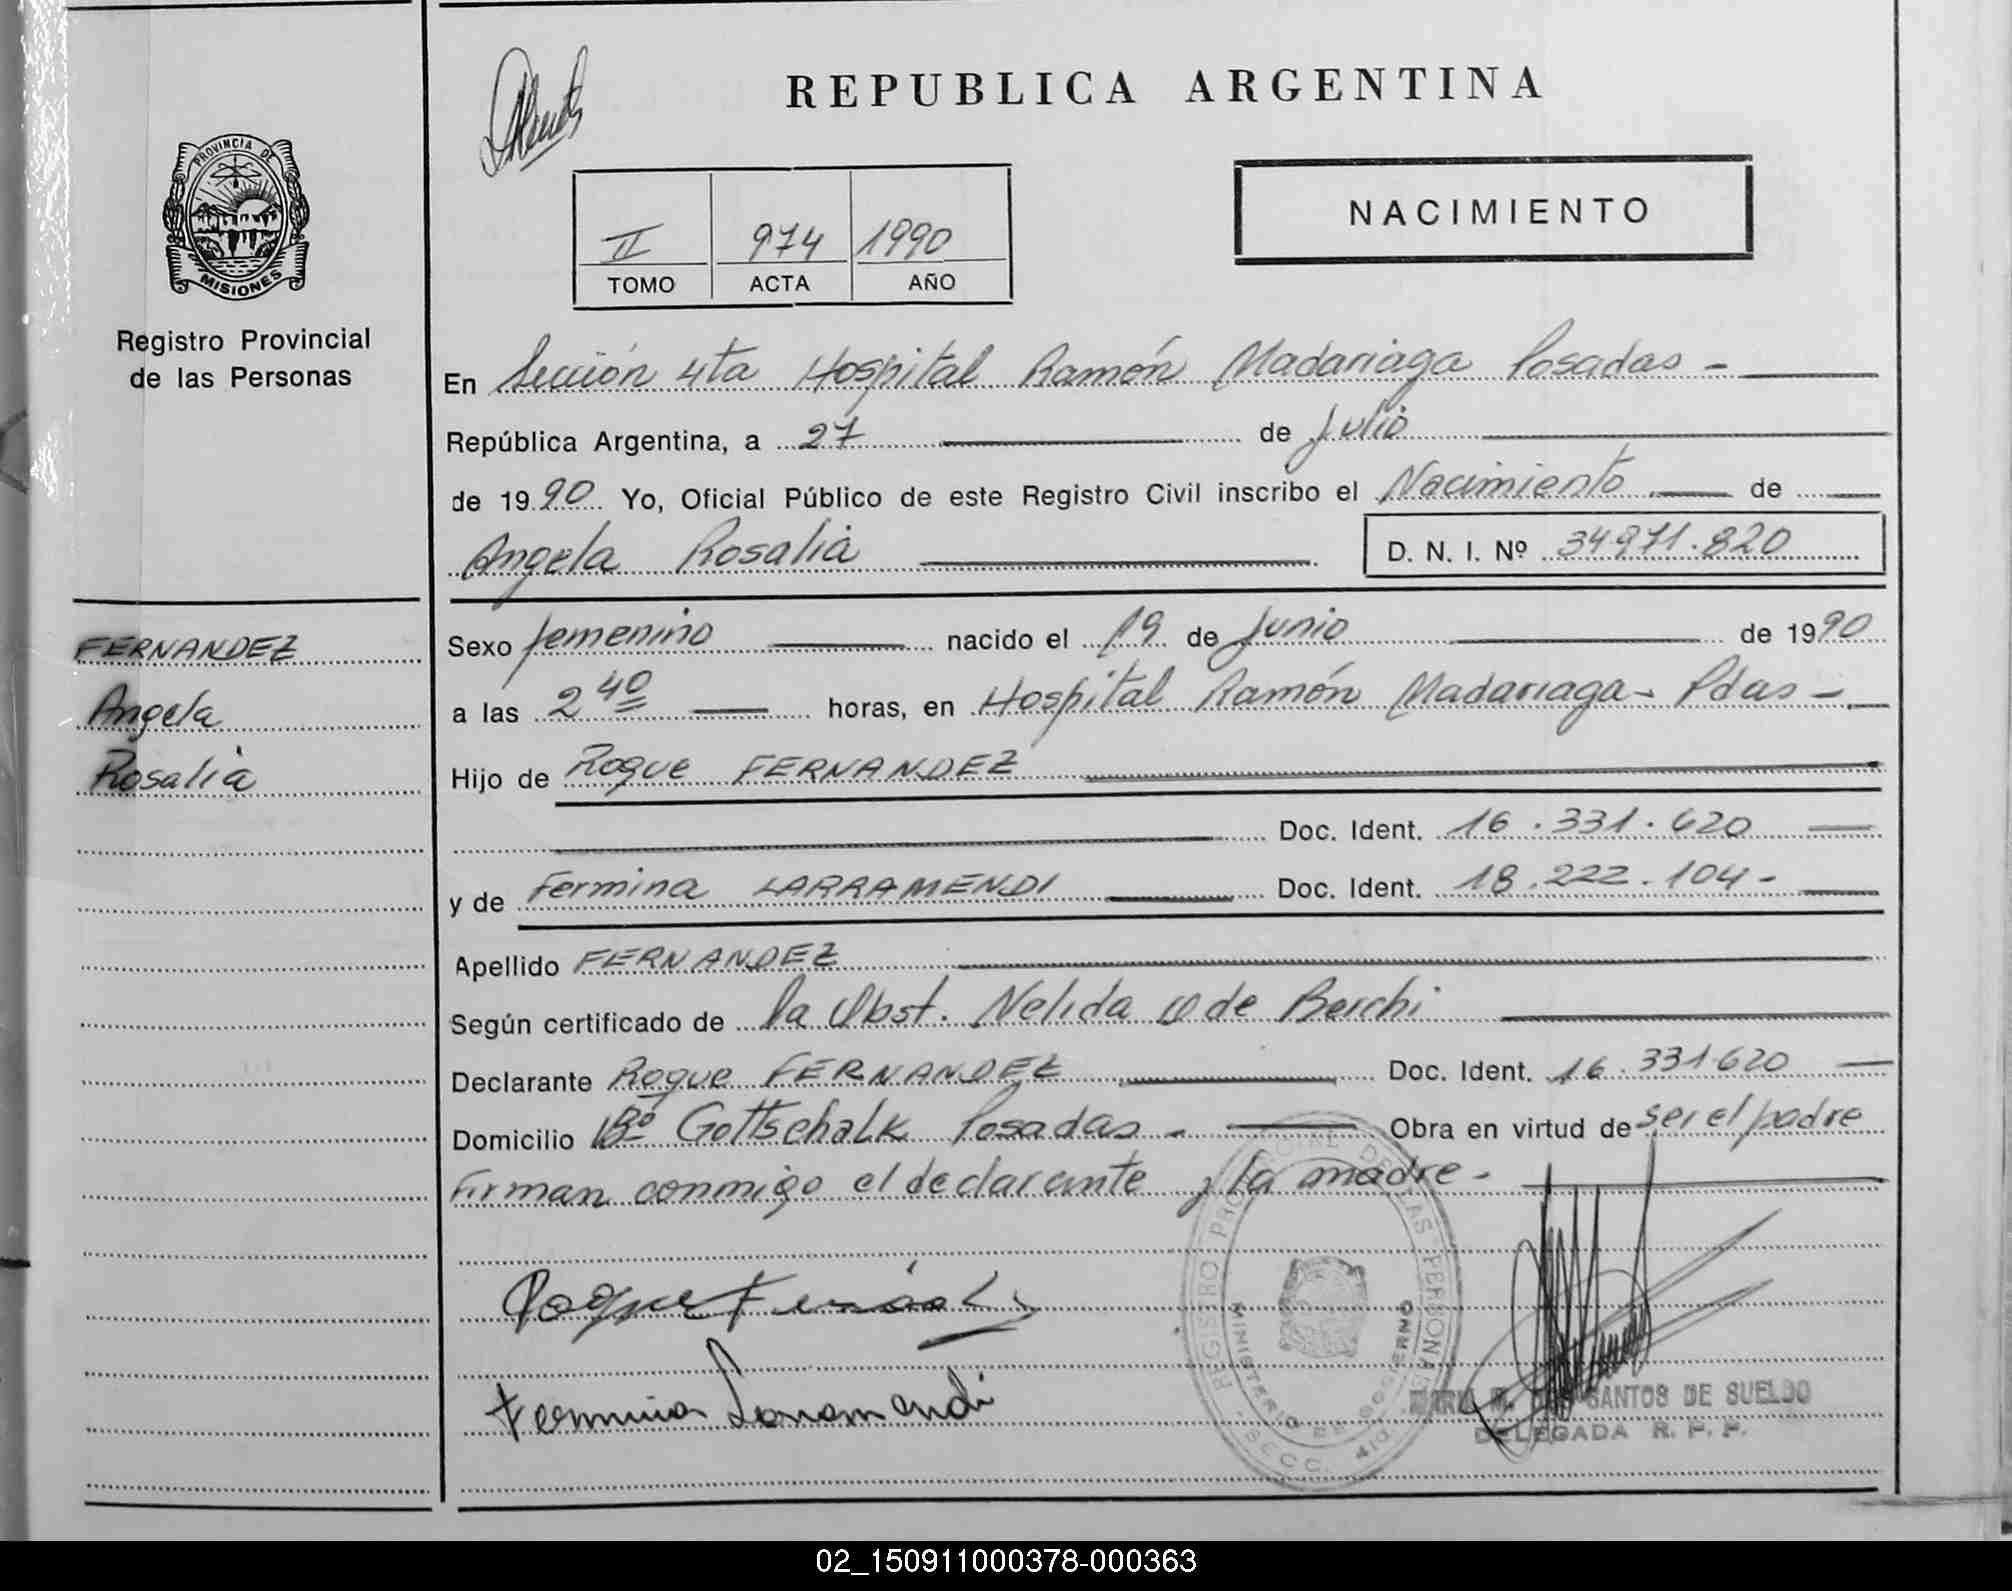 REPUBLICA ARGENTINA
PROVINCIA DE
MISIONES
Registro Provincial
de las Personas
II 974 1990
TOMO ACTA AÑO
NACIMIENTO
En Sección 4ta Hospital Ramón Madariaga Posadas -
República Argentina, a 27 de Julio
de 1990 Yo, Oficial Público de este Registro Civil inscribo el Nacimiento de
Angela Rosalia D. N. I. Nº 34971.820
FERNANDEZ
Angela
Rosalia
Sexo femenino nacido el 19 de Junio de 1990
a las 2 40 horas, en Hospital Ramón Madariaga - Pdas -
Hijo de Roque FERNANDEZ
Doc. Ident. 16.331.620
y de Fermina LARRAMENDI Doc. Ident. 18.222.104-
Apellido FERNANDEZ
Según certificado de la Obst. Nelida de Berchi
Declarante Roque FERNANDEZ Doc. Ident. 16.331.620
Domicilio Bº Gottschalk Posadas - Obra en virtud de ser el padre
Firman conmigo el declarante y la madre -
Roque
Fermina Larramendi
REGISTRO PROVINCIAL DE LAS PERSONAS
MINISTERIO DE GOBIERNO
SECC. 4
SANTOS DE SUELDO
DELEGADA R. P. P.
02_150911000378-000363